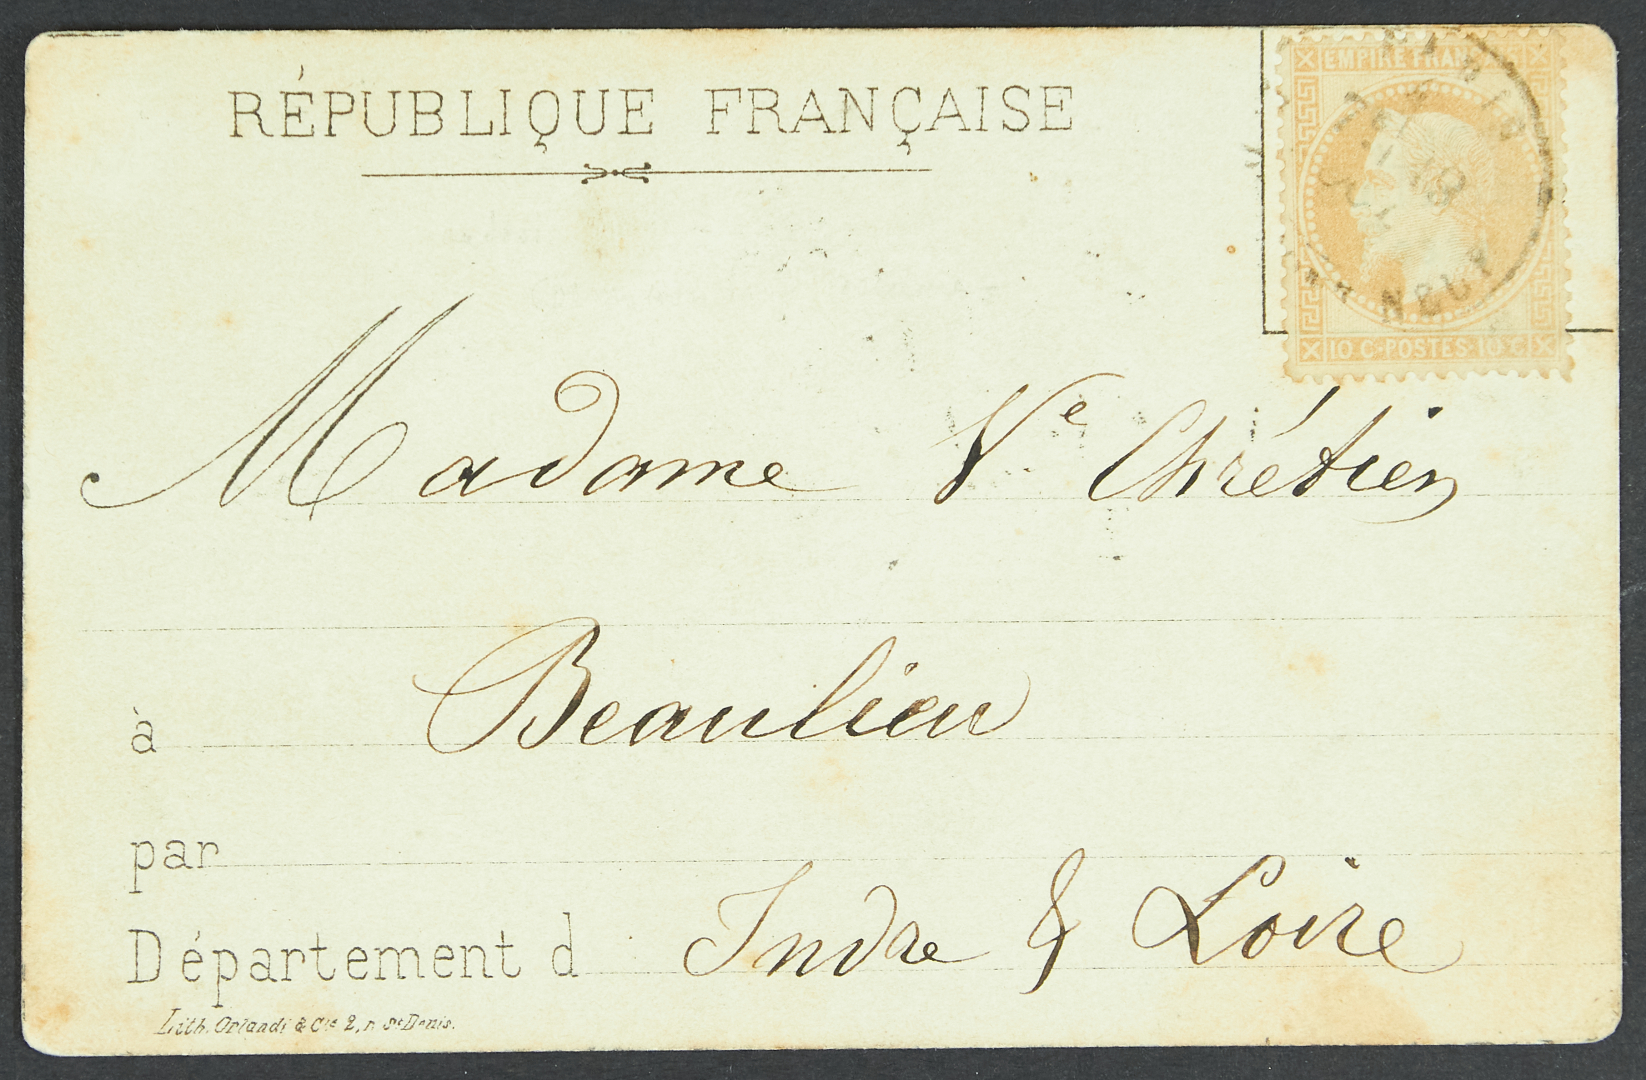 RÉPUBLIQUE FRANÇAISE
EMPIRE FRANÇAIS
NEUF
10 C. POSTES 10 C.
Madame Ve Chrétien
à Beaulieu
par
Département d Indre & Loire
Lith. Orlandi & Cie 2, r. St Denis.